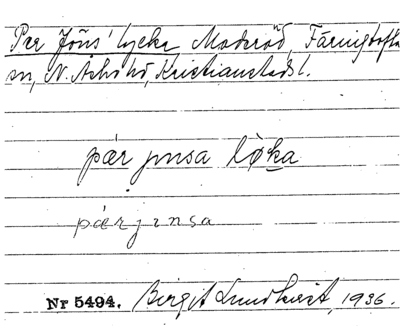 Per Jöns' lycka Maderöd, Färingtofta
sn, N. Åsbo hd, Kristianstads l.
pær jɪnsa lỳka
pærjɪnsa
Nr 5494. Birgit Lundkvist, 1936.